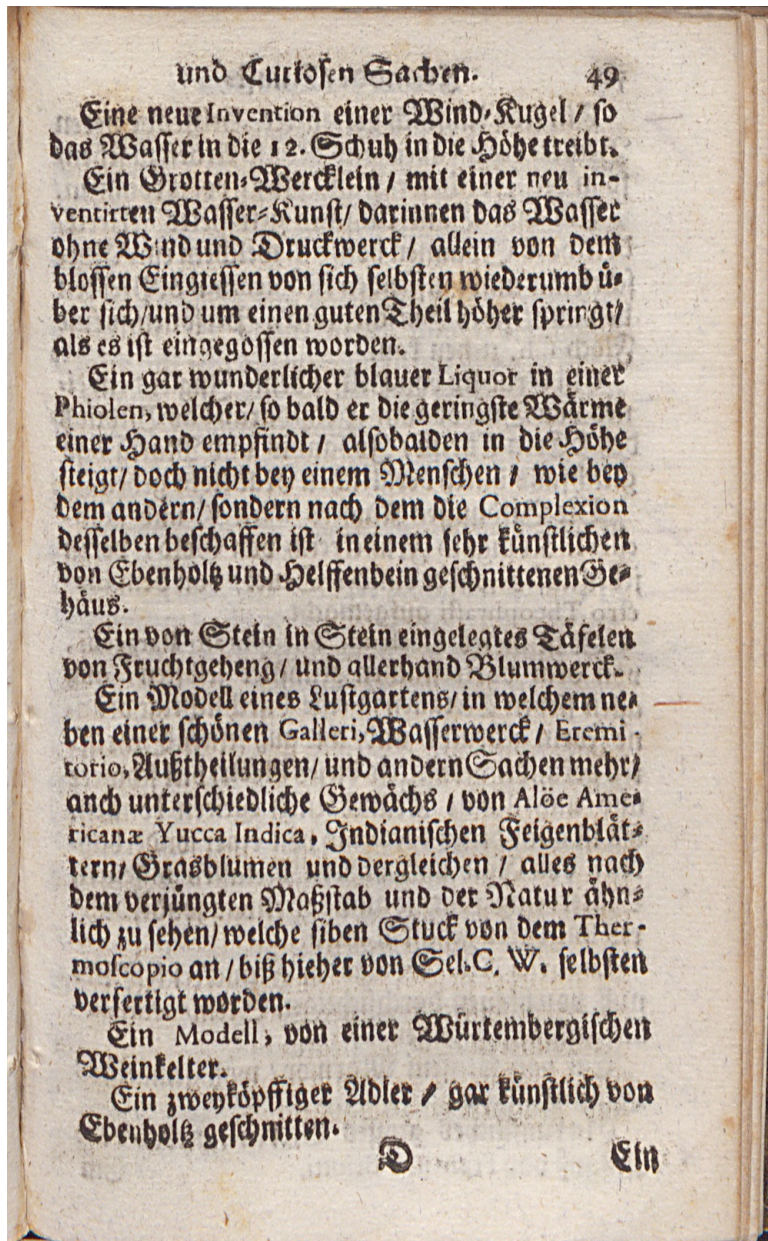 und Curiosen Sachen. 49
Eine neue Invention einer Wind-Kugel / so
das Wasser in die 12. Schuh in die Höhe treibt.
Ein Grotten-Wercklein / mit einer neu in-
ventirten Wasser-Kunst / darinnen das Wasser
ohne Wind und Druckwerck / allein von dem
blossen Eingiessen von sich selbsten wiederumb ü-
ber sich / und um einen guten Theil höher springt /
als es ist eingegossen worden.
Ein gar wunderlicher blauer Liquor in einer
Phiolen, welcher / so bald er die geringste Wärme
einer Hand empfindt / alsobalden in die Höhe
steigt / doch nicht bey einem Menschen / wie bey
dem andern / sondern nach dem die Complexion
desselben beschaffen ist in einem sehr künstlichen
von Ebenholtz und Helffenbein geschnittenen Ge-
häus.
Ein von Stein in Stein eingelegtes Täfelen
von Fruchtgeheng / und allerhand Blumwerck.
Ein Modell eines Lustgartens / in welchem ne-
ben einer schönen Galleri, Wasserwerck / Eremi-
torio, Außtheilungen / und andern Sachen mehr /
auch unterschiedliche Gewächs / von Alöe Ame-
ricanæ Yucca Indica, Indianischen Feigenblät-
tern / Grasblumen und dergleichen / alles nach
dem verjüngten Maßstab und der Natur ähn-
lich zu sehen / welche siben Stuck von dem Ther-
moscopio an / biß hieher von Sel. C. W. selbsten
verfertigt worden.
Ein Modell, von einer Würtembergischen
Weinkelter.
Ein zweyköpffiger Adler / gar künstlich von
Ebenholtz geschnitten.
D Ein